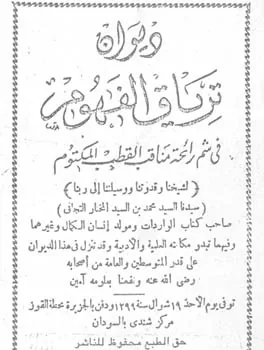 ديوان
ترياق الفهوم
في شم رائحة مناقب القطب المكتوم
( لشيخنا وقدوتنا ووسيلتنا إلى ربنا )
( سيدنا السيد محمد بن السيد المختار التجاني )
صاحب كتاب الواردات ومولد إنسان الكمال وغيرهما
وفيهما تبدو مكانته العلمية والأدبية وقد تنزل في هذا الديوان
على قدر المتوسطين والعامة من أصحابه
رضي الله عنه ونفعنا بعلومه آمين
توفى يوم الأحد ١٩ شوال سنة ١٢٩٩ ودفن بالجزيرة محطة القوز
مركز شندى بالسودان
حق الطبع محفوظ للناشر